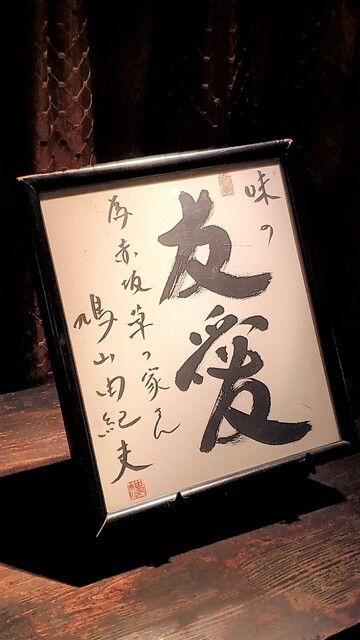 味の
友愛
為赤坂草つ家さん
鳩山由紀夫